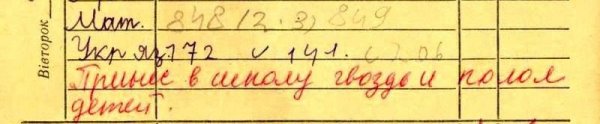 Вівторок
Мат. 848 (2.3) 849
Укр яз. 172 с 141. с 206
Принес в школу гвозди и колол
детей.